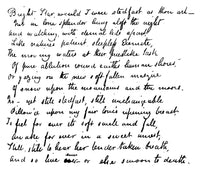 Bright Star would I were stedfast as thou art—
Not in lone splendor hung aloft the night
and watching, with eternal lids apart
Like nature's patient sleepless Eremite,
The morning waters at their priestlike task
Of pure ablution round earth's human shores;
Or gazing on the new soft fallen masque
Of snow upon the mountains and the moors.
No— yet still stedfast, still unchangeable
Pillow'd upon my fair love's ripening breast
To feel for ever its soft swell and fall,
Awake for ever in a sweet unrest,
Still, still to hear her tender-taken breath,
and so live ever— or else swoon to death.